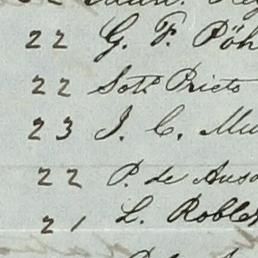 22 G. F. Pöh
22 Soto Prieto
23 J. C. Mu
22 P. de Auso
21 L. Robles